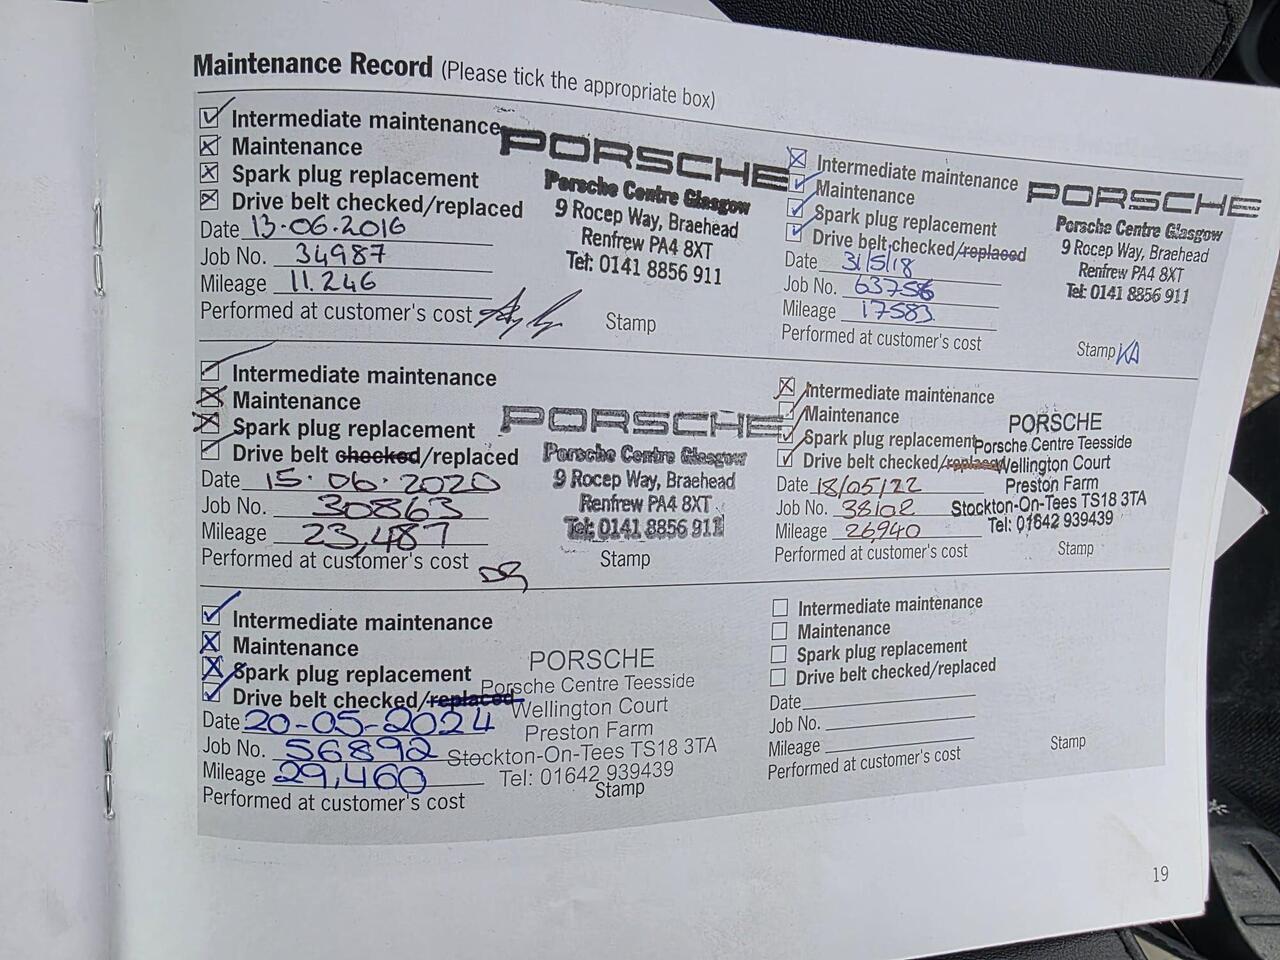 Maintenance Record (Please tick the appropriate box)
Intermediate maintenance
Maintenance
Spark plug replacement
Drive belt checked/replaced
Date 13.06.2016
Job No. 34987
Mileage 11.246
Performed at customer's cost
PORSCHE
Porsche Centre Glasgow
9 Rocep Way, Braehead
Renfrew PA4 8XT
Tel: 0141 8856 911
Stamp
Intermediate maintenance
Maintenance
Spark plug replacement
Drive belt checked/replaced
Date 31/5/18
Job No. 63756
Mileage 17583
Performed at customer's cost
PORSCHE
Porsche Centre Glasgow
9 Rocep Way, Braehead
Renfrew PA4 8XT
Tel: 0141 8856 911
Stamp KA
Intermediate maintenance
Maintenance
Spark plug replacement
Drive belt checked/replaced
Date 15.06.2020
Job No. 30863
Mileage 23,487
Performed at customer's cost
PORSCHE
Porsche Centre Glasgow
9 Rocep Way, Braehead
Renfrew PA4 8XT
Tel: 0141 8856 911
Stamp
Intermediate maintenance
Maintenance
Spark plug replacement
Drive belt checked/replaced
Date 18/05/22
Job No. 38102
Mileage 26940
Performed at customer's cost
PORSCHE
Porsche Centre Teesside
Wellington Court
Preston Farm
Stockton-On-Tees TS18 3TA
Tel: 01642 939439
Stamp
Intermediate maintenance
Maintenance
Spark plug replacement
Drive belt checked/replaced
Date 20-05-2024
Job No. 56892
Mileage 29,460
Performed at customer's cost
PORSCHE
Porsche Centre Teesside
Wellington Court
Preston Farm
Stockton-On-Tees TS18 3TA
Tel: 01642 939439
Stamp
Intermediate maintenance
Maintenance
Spark plug replacement
Drive belt checked/replaced
Date
Job No.
Mileage
Performed at customer's cost
Stamp
19